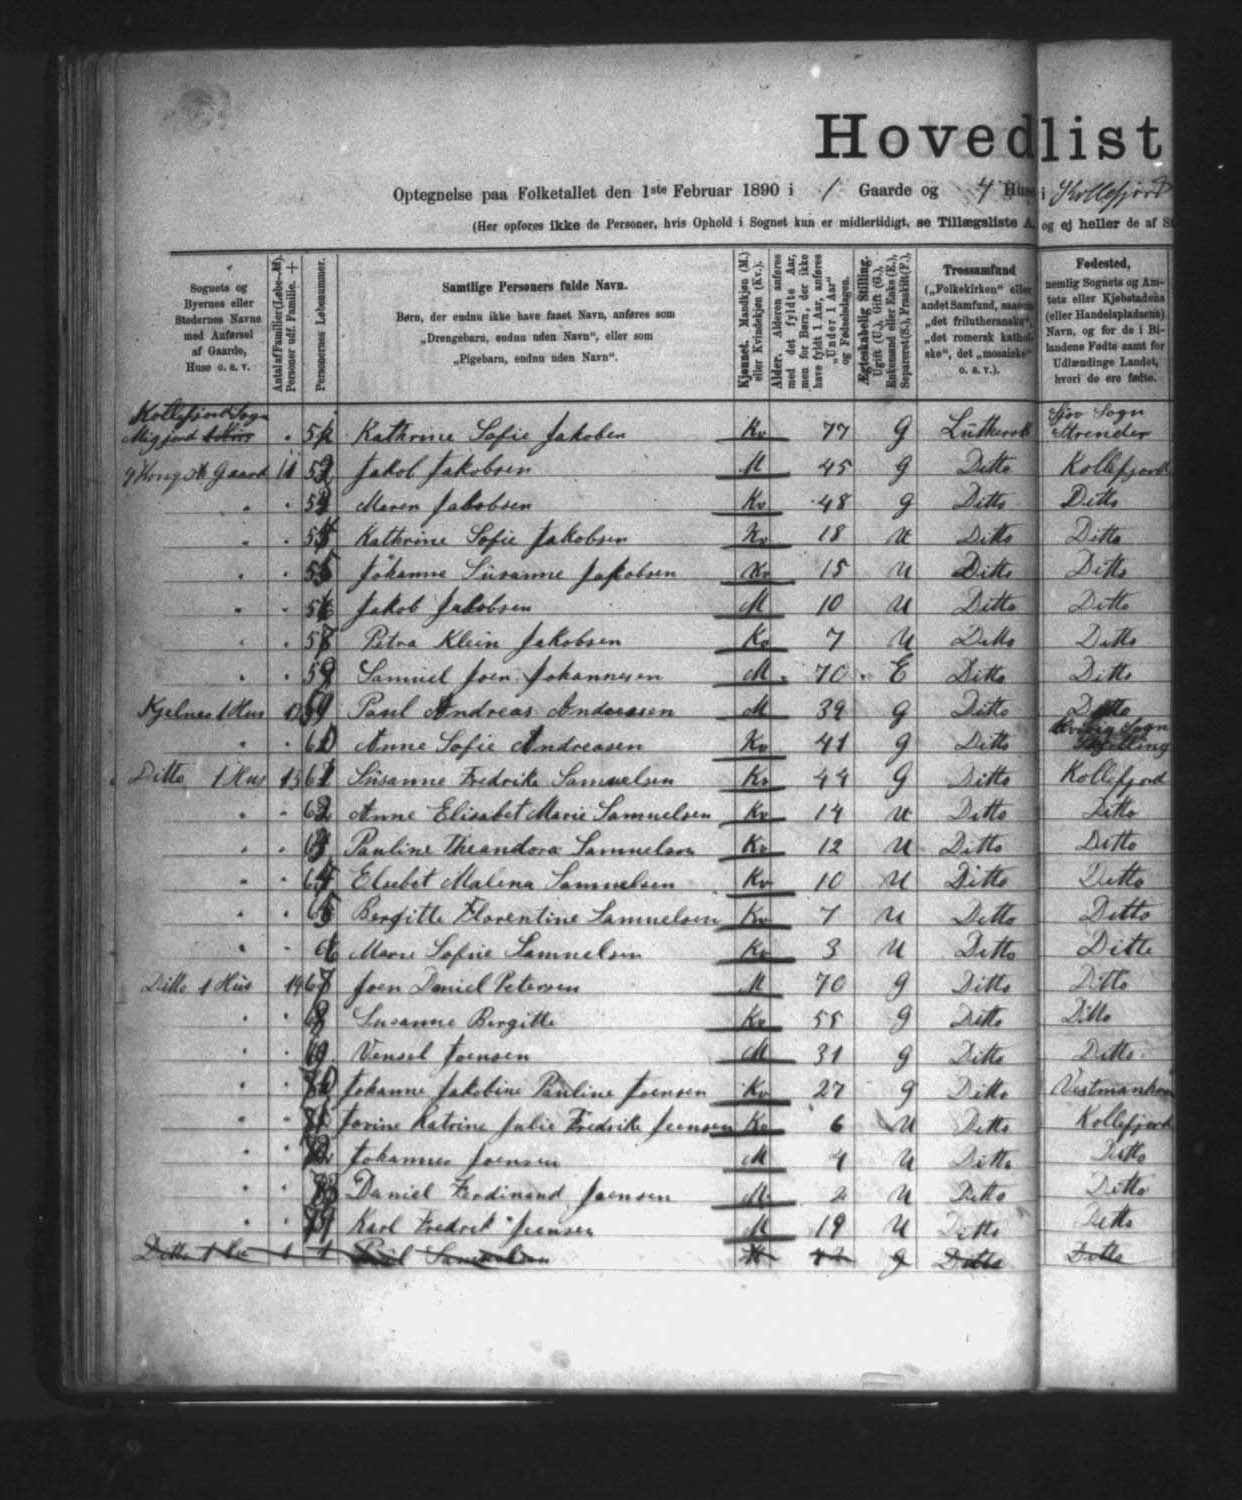 Hovedlist
Optegnelse paa Folketallet den 1ste Februar 1890 i 1 Gaarde og 4 Huse i Kollefjord
(Her opføres ikke de Personer, hvis Ophold i Sognet kun er midlertidigt, se Tillægsliste A, og ej heller de af
Sognets og Byernes eller Stedernes Navne med Anførsel af Gaarde, Huse o. s. v.
Antal af Familier
Personer udf. Familie. +
Personernes Løbenummer.
Samtlige Personers fulde Navn.
Børn, der endnu ikke have faaet Navn, anføres som
„Drengebarn, endnu uden Navn“, eller som
„Pigebarn, endnu uden Navn“.
Kjønnet. Mandkjøn (M.) eller Kvindekjøn (Kv.).
Alder. Alderen anføres med det fyldte Aar, men for Børn, der ikke have fyldt 1 Aar, anføres „Under 1 Aar“ og Fødselsdagen.
Ægteskabelig Stilling. Ugift (U.), Gift (G.), Enkemand eller Enke (E.), Separeret (S.), Fraskilt (F.).
Trossamfund
(„Folkekirken“ eller andet Samfund, saasom „det frilutheranske“, „det romersk katholske“, det „mosaiske“ o. s. v.).
Fødested,
nemlig Sognets og Amtets eller Kjøbstadens (eller Handelspladsens) Navn, og for de i Bilandene Fødte samt for Udlændinge Landet, hvori de ere fødte.
Kollefjord Sogn Sjov Sogn
Kathrine Sofie Jakobsen Kv 77 G Luthersk Strender
Kong sk Gaard 11 Jakob Jakobsen M 45 G Ditto Kollefjord
Maren Jakobsen Kv 48 G Ditto Ditto
Kathrine Sofie Jakobsen Kv 18 U Ditto Ditto
Johanne Susanne Jakobsen Kv 15 U Ditto Ditto
Jakob Jakobsen M 10 U Ditto Ditto
Petra Klein Jakobsen Kv 7 U Ditto Ditto
Samuel Joen Johannesen M 70 E Ditto Ditto
Kjelnes 1 Hus 12 Paul Andreas Andreasen M 39 G Ditto Ditto
Anne Sofie Andreasen Kv 41 G Ditto
Ditto 1 Hus 13 Susanne Fredrike Samuelsen Kv 44 G Ditto Kollefjord
Anne Elisabet Marie Samuelsen Kv 14 U Ditto Ditto
Pauline Theandora Samuelsen Kv 12 U Ditto Ditto
Elsebet Malena Samuelsen Kv 10 U Ditto Ditto
Bergitte Florentine Samuelsen Kv 7 U Ditto Ditto
Marie Sofie Samuelsen Kv 3 U Ditto Ditto
Ditto 1 Hus 14 Joen Daniel Petersen M 70 G Ditto Ditto
Susanne Bergitte Kv 55 G Ditto Ditto
Vensel Joensen M 31 G Ditto Ditto
Johanne Jakobine Pauline Joensen Kv 27 G Ditto Vestmanhavn
Jovine Katrine Julie Fredrike Joensen Kv 6 U Ditto Kollefjord
Johannes Joensen M 4 U Ditto Ditto
Daniel Ferdinand Joensen M 2 U Ditto Ditto
Karl Fredrik Joensen M 19 U Ditto Ditto
Ditto 1 Samuelsen G Ditto Ditto